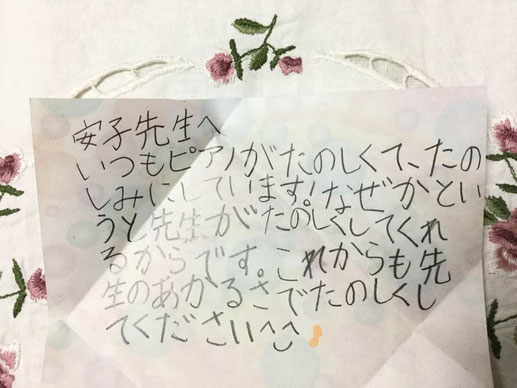 安子先生へ
いつもピアノがたのしくて、たの
しみにしています!なぜかとい
うと先生がたのしくしてくれ
るからです。これからも先
生のあかるさでたのしくし
てください^^